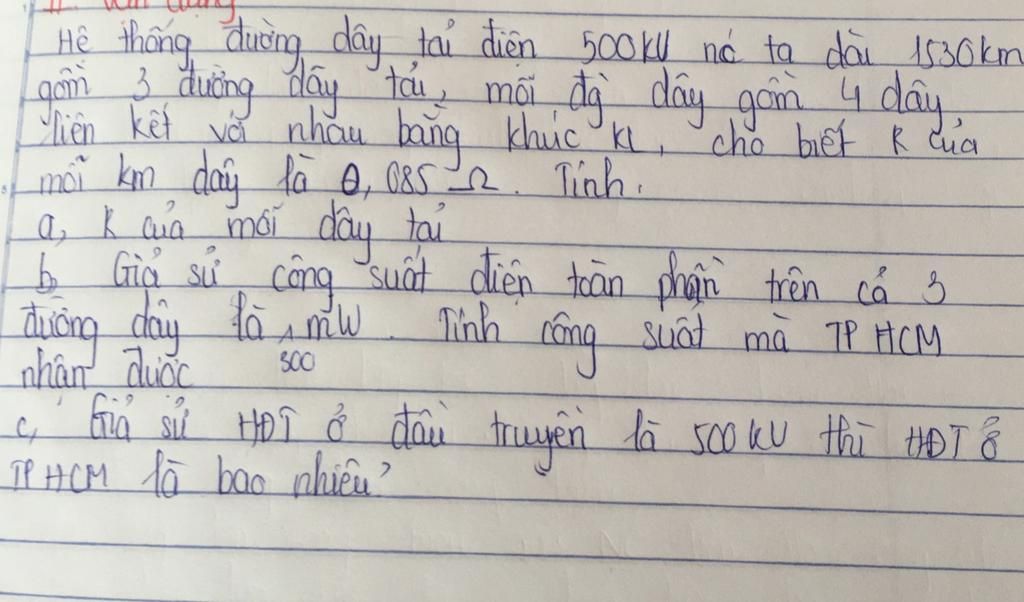 Hệ thống đường dây tải điện 500kV nc ta dài 1530km
gồm 3 đường dây tải, mỗi đg dây gồm 4 dây,
liên kết với nhau bằng khúc kl, cho biết R của
mỗi km dây là 0,085 Ω. Tính.
a, R của mỗi dây tải
b, Giả sử công suất điện toàn phần trên cả 3
đường dây là mW. Tính công suất mà TP HCM
500
nhận được
c, Giả sử HĐT ở đầu truyền là 500kV thì HĐT ở
TP HCM là bao nhiêu?